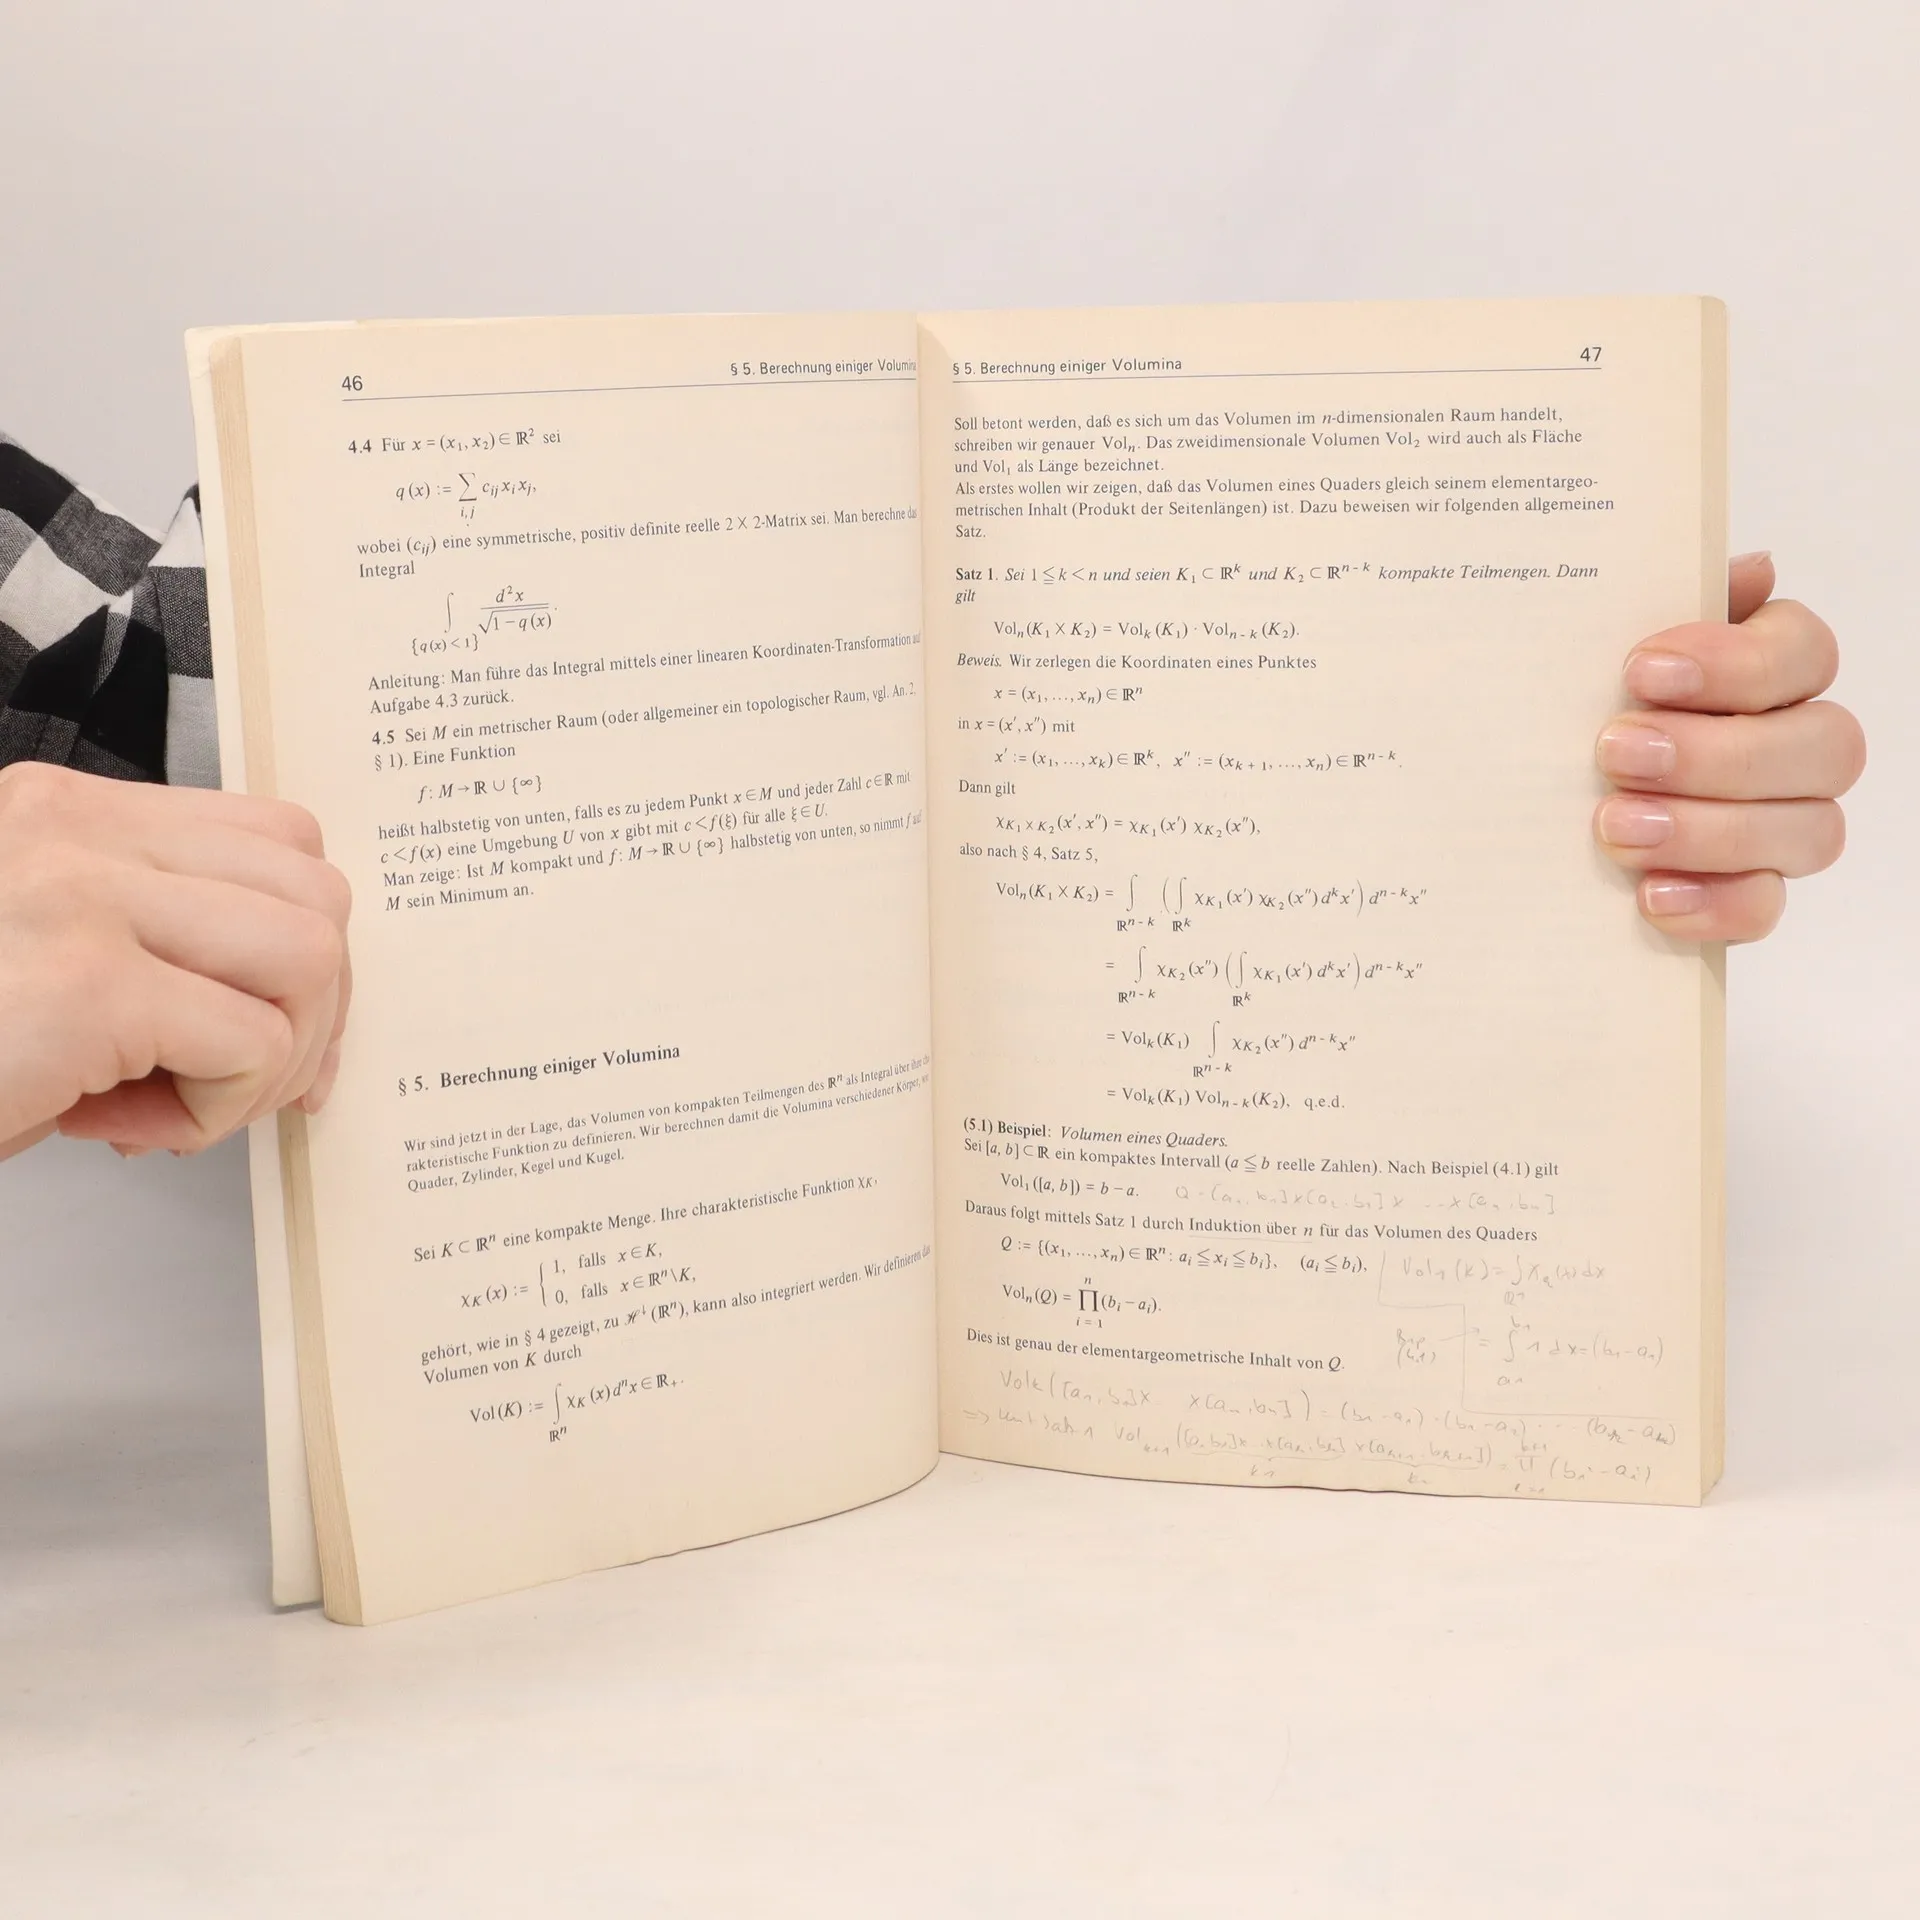 46
§ 5. Berechnung einiger Volumina
4.4 Für x = (x₁, x₂) ∈ ℝ² sei
q(x) := ∑ cᵢⱼ xᵢ xⱼ,
i, j
wobei (cᵢⱼ) eine symmetrische, positiv definite reelle 2 × 2-Matrix sei. Man berechne das
Integral
∫ d²x / √1 − q(x) .
{q(x) < 1}
Anleitung: Man führe das Integral mittels einer linearen Koordinaten-Transformation auf
Aufgabe 4.3 zurück.
4.5 Sei M ein metrischer Raum (oder allgemeiner ein topologischer Raum, vgl. An. 2,
§ 1). Eine Funktion
f: M → ℝ ∪ {∞}
heißt halbstetig von unten, falls es zu jedem Punkt x ∈ M und jeder Zahl c ∈ ℝ mit
c < f(x) eine Umgebung U von x gibt mit c < f(ξ) für alle ξ ∈ U.
Man zeige: Ist M kompakt und f: M → ℝ ∪ {∞} halbstetig von unten, so nimmt f auf
M sein Minimum an.
§ 5. Berechnung einiger Volumina
Wir sind jetzt in der Lage, das Volumen von kompakten Teilmengen des ℝⁿ als Integral über ihre cha-
rakteristische Funktion zu definieren. Wir berechnen damit die Volumina verschiedener Körper, wie
Quader, Zylinder, Kegel und Kugel.
Sei K ⊂ ℝⁿ eine kompakte Menge. Ihre charakteristische Funktion χ_K,
χ_K(x) := { 1, falls x ∈ K,
0, falls x ∈ ℝⁿ \ K,
gehört, wie in § 4 gezeigt, zu ℋ↓(ℝⁿ), kann also integriert werden. Wir definieren das
Volumen von K durch
Vol(K) := ∫ χ_K(x) dⁿx ∈ ℝ₊.
ℝⁿ
§ 5. Berechnung einiger Volumina
47
Soll betont werden, daß es sich um das Volumen im n-dimensionalen Raum handelt,
schreiben wir genauer Volₙ. Das zweidimensionale Volumen Vol₂ wird auch als Fläche
und Vol₁ als Länge bezeichnet.
Als erstes wollen wir zeigen, daß das Volumen eines Quaders gleich seinem elementargeo-
metrischen Inhalt (Produkt der Seitenlängen) ist. Dazu beweisen wir folgenden allgemeinen
Satz.
Satz 1. Sei 1 ≦ k < n und seien K₁ ⊂ ℝᵏ und K₂ ⊂ ℝⁿ⁻ᵏ kompakte Teilmengen. Dann
gilt
Volₙ(K₁ × K₂) = Volₖ(K₁) · Volₙ₋ₖ(K₂).
Beweis. Wir zerlegen die Koordinaten eines Punktes
x = (x₁, ..., xₙ) ∈ ℝⁿ
in x = (x′, x″) mit
x′ := (x₁, ..., xₖ) ∈ ℝᵏ, x″ := (xₖ₊₁, ..., xₙ) ∈ ℝⁿ⁻ᵏ.
Dann gilt
χ_K₁×K₂(x′, x″) = χ_K₁(x′) χ_K₂(x″),
also nach § 4, Satz 5,
Volₙ(K₁ × K₂) = ∫ ( ∫ χ_K₁(x′) χ_K₂(x″) dᵏx′ ) dⁿ⁻ᵏx″
ℝⁿ⁻ᵏ ℝᵏ
= ∫ χ_K₂(x″) ( ∫ χ_K₁(x′) dᵏx′ ) dⁿ⁻ᵏx″
ℝⁿ⁻ᵏ ℝᵏ
= Volₖ(K₁) ∫ χ_K₂(x″) dⁿ⁻ᵏx″
ℝⁿ⁻ᵏ
= Volₖ(K₁) Volₙ₋ₖ(K₂), q.e.d.
(5.1) Beispiel: Volumen eines Quaders.
Sei [a, b] ⊂ ℝ ein kompaktes Intervall (a ≦ b reelle Zahlen). Nach Beispiel (4.1) gilt
Vol₁([a, b]) = b − a.
Daraus folgt mittels Satz 1 durch Induktion über n für das Volumen des Quaders
Q := {(x₁, ..., xₙ) ∈ ℝⁿ: aᵢ ≦ xᵢ ≦ bᵢ}, (aᵢ ≦ bᵢ),
n
Volₙ(Q) = ∏ (bᵢ − aᵢ).
i = 1
Dies ist genau der elementargeometrische Inhalt von Q.
= ∫ 1 dx = (b₁ − a₁)